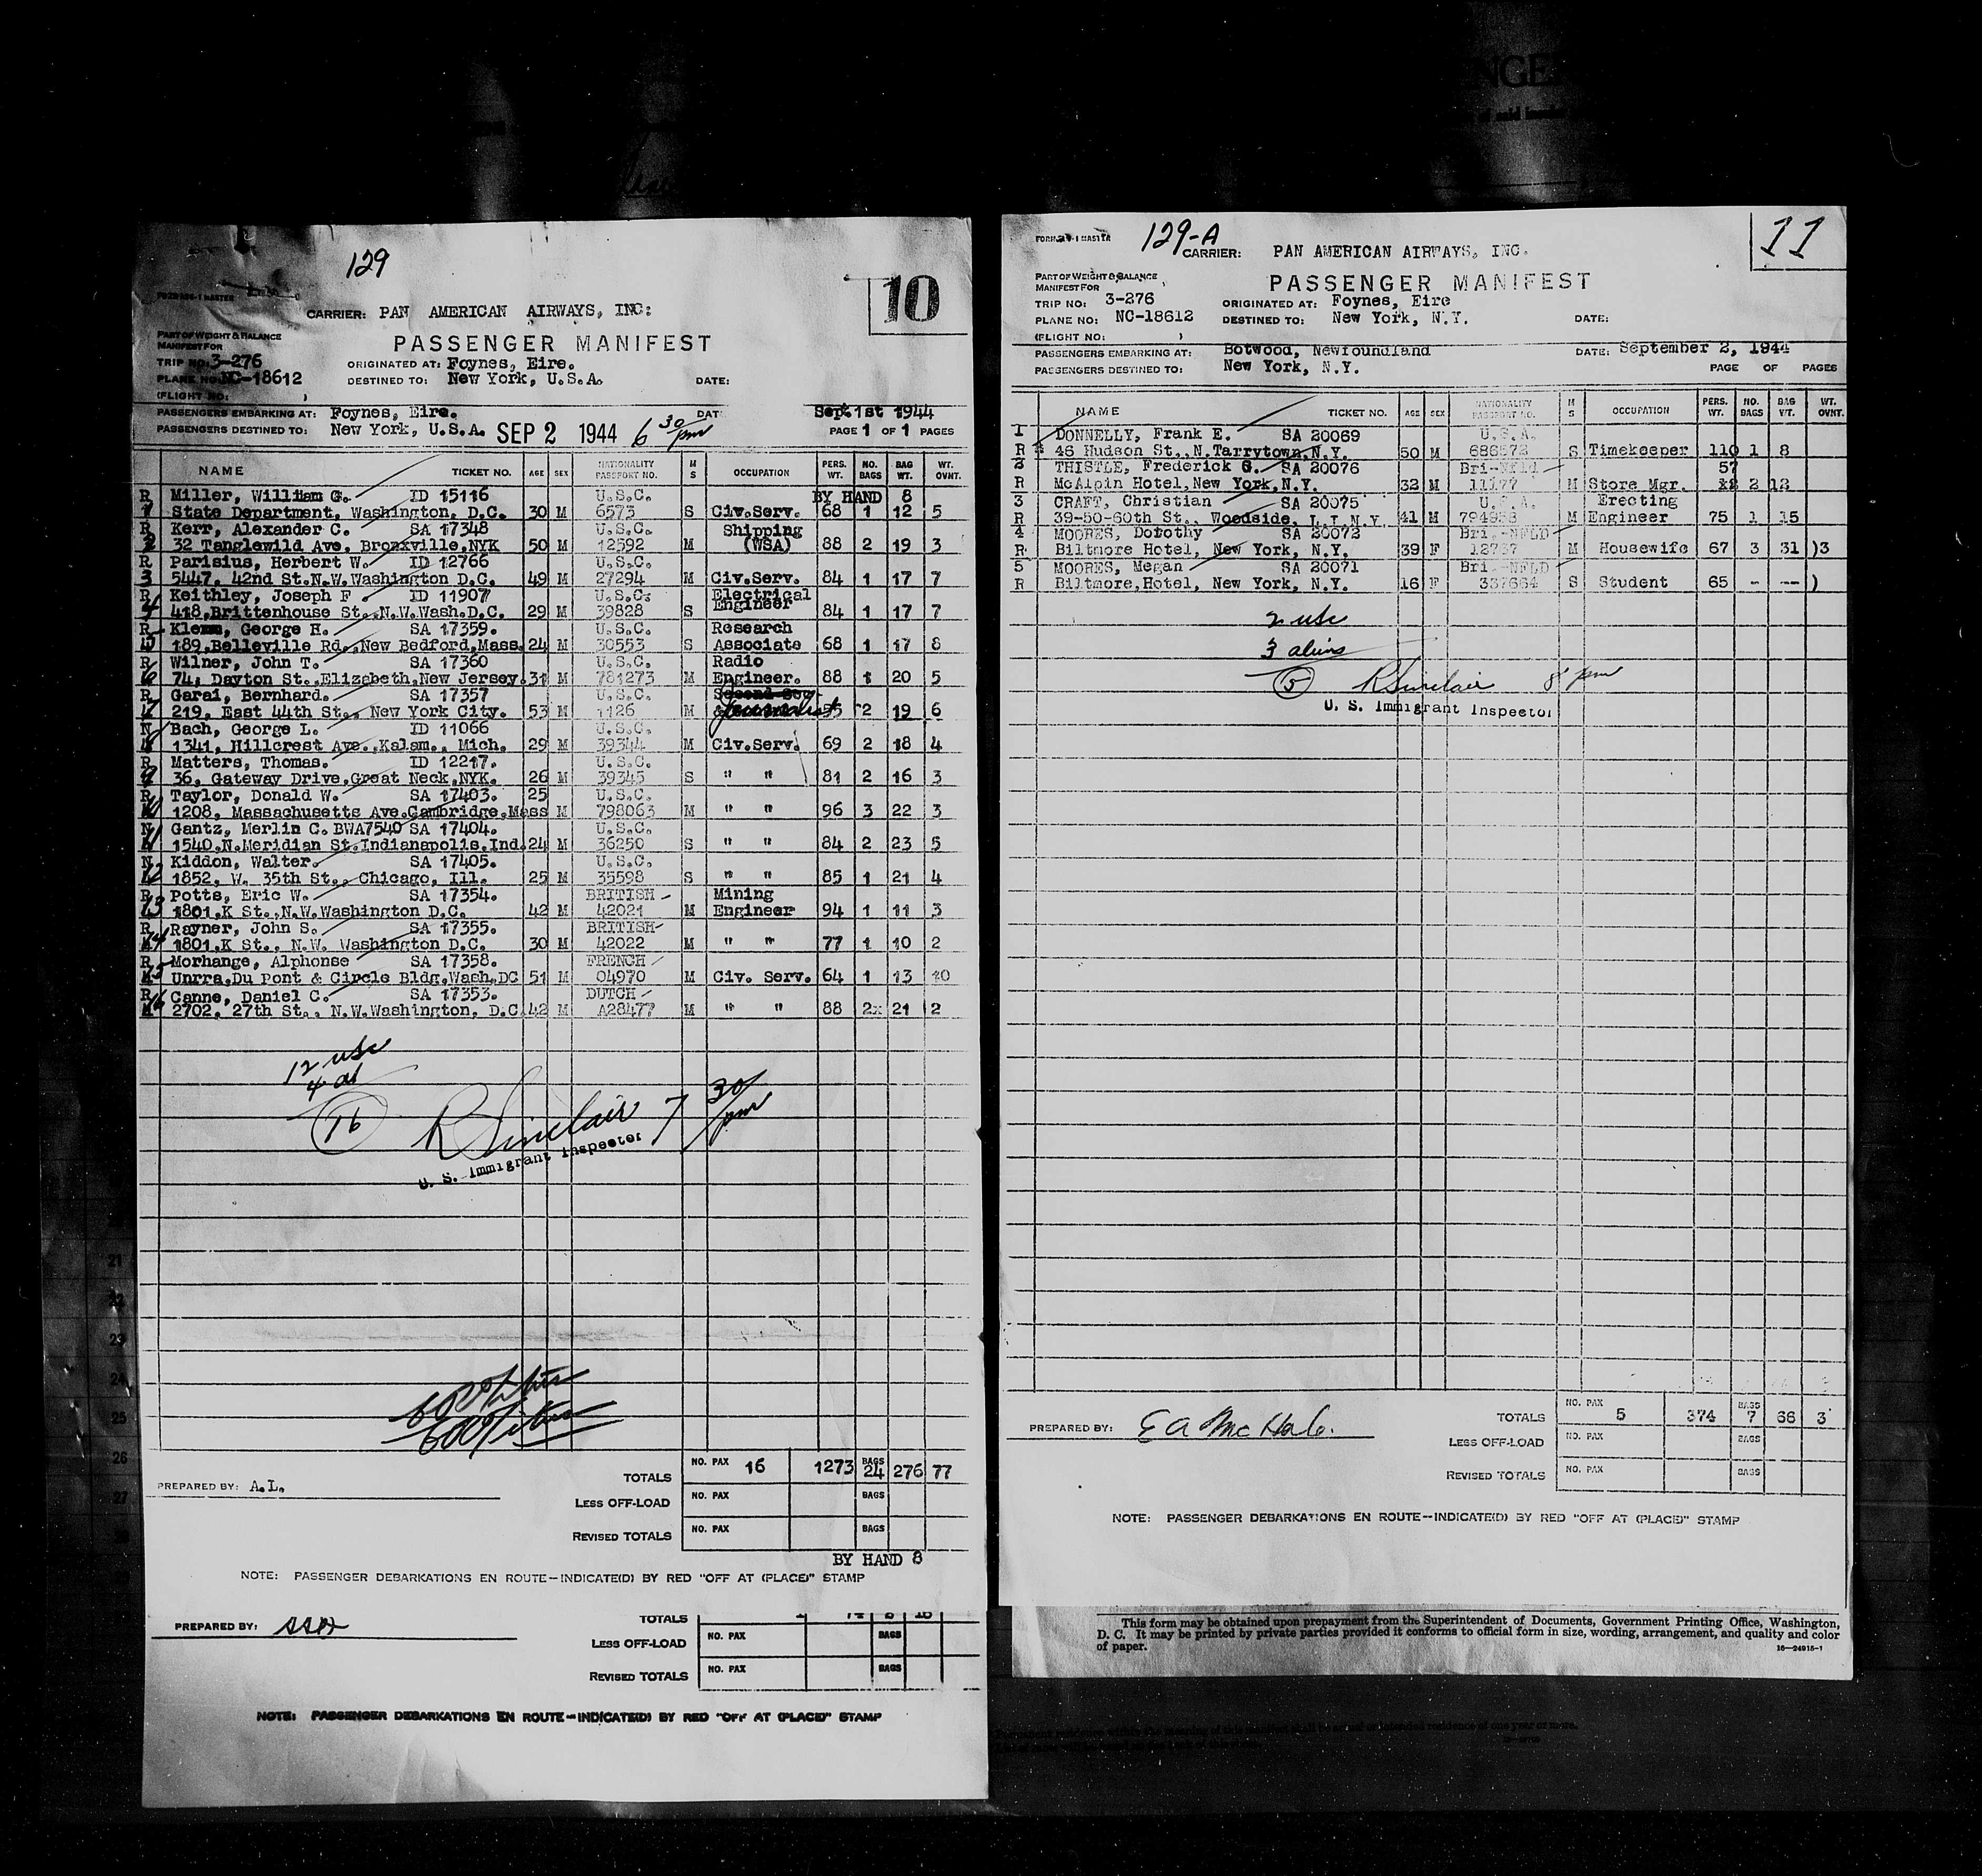 129
10
CARRIER: PAN AMERICAN AIRWAYS, INC:
PART OF WEIGHT & BALANCE
MANIFEST FOR
PASSENGER MANIFEST
TRIP NO: 3-276
ORIGINATED AT: Foynes, Eire.
PLANE NO: NC-18612
DESTINED TO: New York, U.S.A. DATE:
(FLIGHT NO: )
PASSENGERS EMBARKING AT: Foynes, Eire. DATE Sept 1st 1944
PASSENGERS DESTINED TO: New York, U.S.A. SEP 2 1944 6 30/pm PAGE 1 OF 1 PAGES
NAME TICKET NO. AGE SEX NATIONALITY PASSPORT NO. M S OCCUPATION PERS. WT. NO. BAGS BAG WT. WT. OVNT.
R Miller, William G. ID 15116 U.S.C. BY HAND 8
1 State Department, Washington, D.C. 30 M 6573 S Civ.Serv. 68 1 12 5
R Kerr, Alexander C. SA 17348 U.S.C. Shipping
2 32 Tanglewild Ave. Bronxville,NYK 50 M 12592 M (WSA) 88 2 19 3
R Parisius, Herbert W. ID 12766 U.S.C.
3 5447, 42nd St.N.W.Washington D.C. 49 M 27294 M Civ.Serv. 84 1 17 7
R Keithley, Joseph F ID 11907 U.S.C. Electrical
4 418,Brittenhouse St.,N.W.Wash.D.C. 29 M 39828 S Engineer 84 1 17 7
R Klemm, George H. SA 17359. U.S.C. Research
5 189,Belleville Rd.,New Bedford,Mass. 24 M 30553 S Associate 68 1 17 8
R Wilner, John T. SA 17360 U.S.C. Radio
6 74, Dayton St.,Elizabeth,New Jersey. 31 M 781273 M Engineer. 88 1 20 5
R Garai, Bernhard. SA 17357 U.S.C.
7 219, East 44th St., New York City. 53 M 1126 M Journalist 55 2 19 6
N Bach, George L. ID 11066 U.S.C.
8 1341, Hillcrest Ave.,Kalam., Mich. 29 M 39344 M Civ.Serv. 69 2 18 4
R Matters, Thomas. ID 12217. U.S.C.
9 36, Gateway Drive,Great Neck,NYK. 26 M 39345 S " " 81 2 16 3
R Taylor, Donald W. SA 17403. 25 U.S.C.
10 1208, Massachusetts Ave.Cambridge,Mass M 798063 M " " 96 3 22 3
N Gantz, Merlin C. BWA7540 SA 17404. U.S.C.
11 1540,N.Meridian St.Indianapolis.Ind. 24 M 36250 S " " 84 2 23 5
N Kiddon, Walter. SA 17405. U.S.C.
12 1852, W. 35th St., Chicago, Ill. 25 M 35598 S " " 85 1 21 4
R Potts, Eric W. SA 17354. BRITISH Mining
13 1801,K St.,N.W.Washington D.C. 42 M 42021 M Engineer 94 1 11 3
R Rayner, John S. SA 17355. BRITISH
14 1801,K St., N.W. Washington D.C. 30 M 42022 M " " 77 1 10 2
R Morhange, Alphonse SA 17358. FRENCH
15 Unrra,Du Pont & Circle Bldg.Wash,DC 51 M 04970 M Civ. Serv. 64 1 13 10
R Canne, Daniel C. SA 17353. DUTCH
16 2702. 27th St., N.W.Washington, D.C. 42 M A28477 M " " 88 2x 21 2
12 usc
4 al
16
R Sinclair 7 30/pm
U. S. Immigrant Inspector
TOTALS NO. PAX 16 1273 BAGS 24 276 77
PREPARED BY: A.L.
LESS OFF-LOAD NO. PAX BAGS
REVISED TOTALS NO. PAX BAGS
BY HAND 8
NOTE: PASSENGER DEBARKATIONS EN ROUTE—INDICATE(D) BY RED "OFF AT (PLACE)" STAMP
TOTALS
PREPARED BY:
LESS OFF-LOAD NO. PAX BAGS
REVISED TOTALS NO. PAX BAGS
NOTE: PASSENGER DEBARKATIONS EN ROUTE—INDICATE(D) BY RED "OFF AT (PLACE)" STAMP
21
22
23
24
25
26
27
129-A
11
CARRIER: PAN AMERICAN AIRWAYS, INC.
PART OF WEIGHT & BALANCE
MANIFEST FOR
PASSENGER MANIFEST
TRIP NO: 3-276
ORIGINATED AT: Foynes, Eire
PLANE NO: NC-18612
DESTINED TO: New York, N.Y. DATE:
(FLIGHT NO: )
PASSENGERS EMBARKING AT: Botwood, Newfoundland DATE: September 2, 1944
PASSENGERS DESTINED TO: New York, N.Y. PAGE OF PAGES
NAME TICKET NO. AGE SEX NATIONALITY PASSPORT NO. M S OCCUPATION PERS. WT. NO. BAGS BAG WT. WT. OVNT.
1 DONNELLY, Frank E. SA 20069 U.S.A.
R 46 Hudson St.,N.Tarrytown,N.Y. 50 M 686572 S Timekeeper 110 1 8
2 THISTLE, Frederick G. SA 20076 Bri-Nfld 57
R McAlpin Hotel,New York,N.Y. 32 M 11177 M Store Mgr. 2 12
3 CRAFT, Christian SA 20075 U.S.A. Erecting
R 39-50-60th St., Woodside, L.I.N.Y. 41 M M Engineer 75 1 15
4 MOORES, Dorothy SA 20072 Bri.-NFLD
R Biltmore Hotel, New York, N.Y. 39 F 12737 M Housewife 67 3 31 )3
5 MOORES, Megan SA 20071 Bri.-NFLD
R Biltmore,Hotel, New York, N.Y. 16 F 337664 S Student 65 - -- )
2 usc
3 aliens
5 R Sinclair 8 pm
U. S. Immigrant Inspector
TOTALS NO. PAX 5 374 BAGS 7 66 3
PREPARED BY: E A McHale.
LESS OFF-LOAD NO. PAX BAGS
REVISED TOTALS NO. PAX BAGS
NOTE: PASSENGER DEBARKATIONS EN ROUTE—INDICATE(D) BY RED "OFF AT (PLACE)" STAMP
This form may be obtained upon prepayment from the Superintendent of Documents, Government Printing Office, Washington,
D. C. It may be printed by private parties provided it conforms to official form in size, wording, arrangement, and quality and color
of paper.
16—24915-1